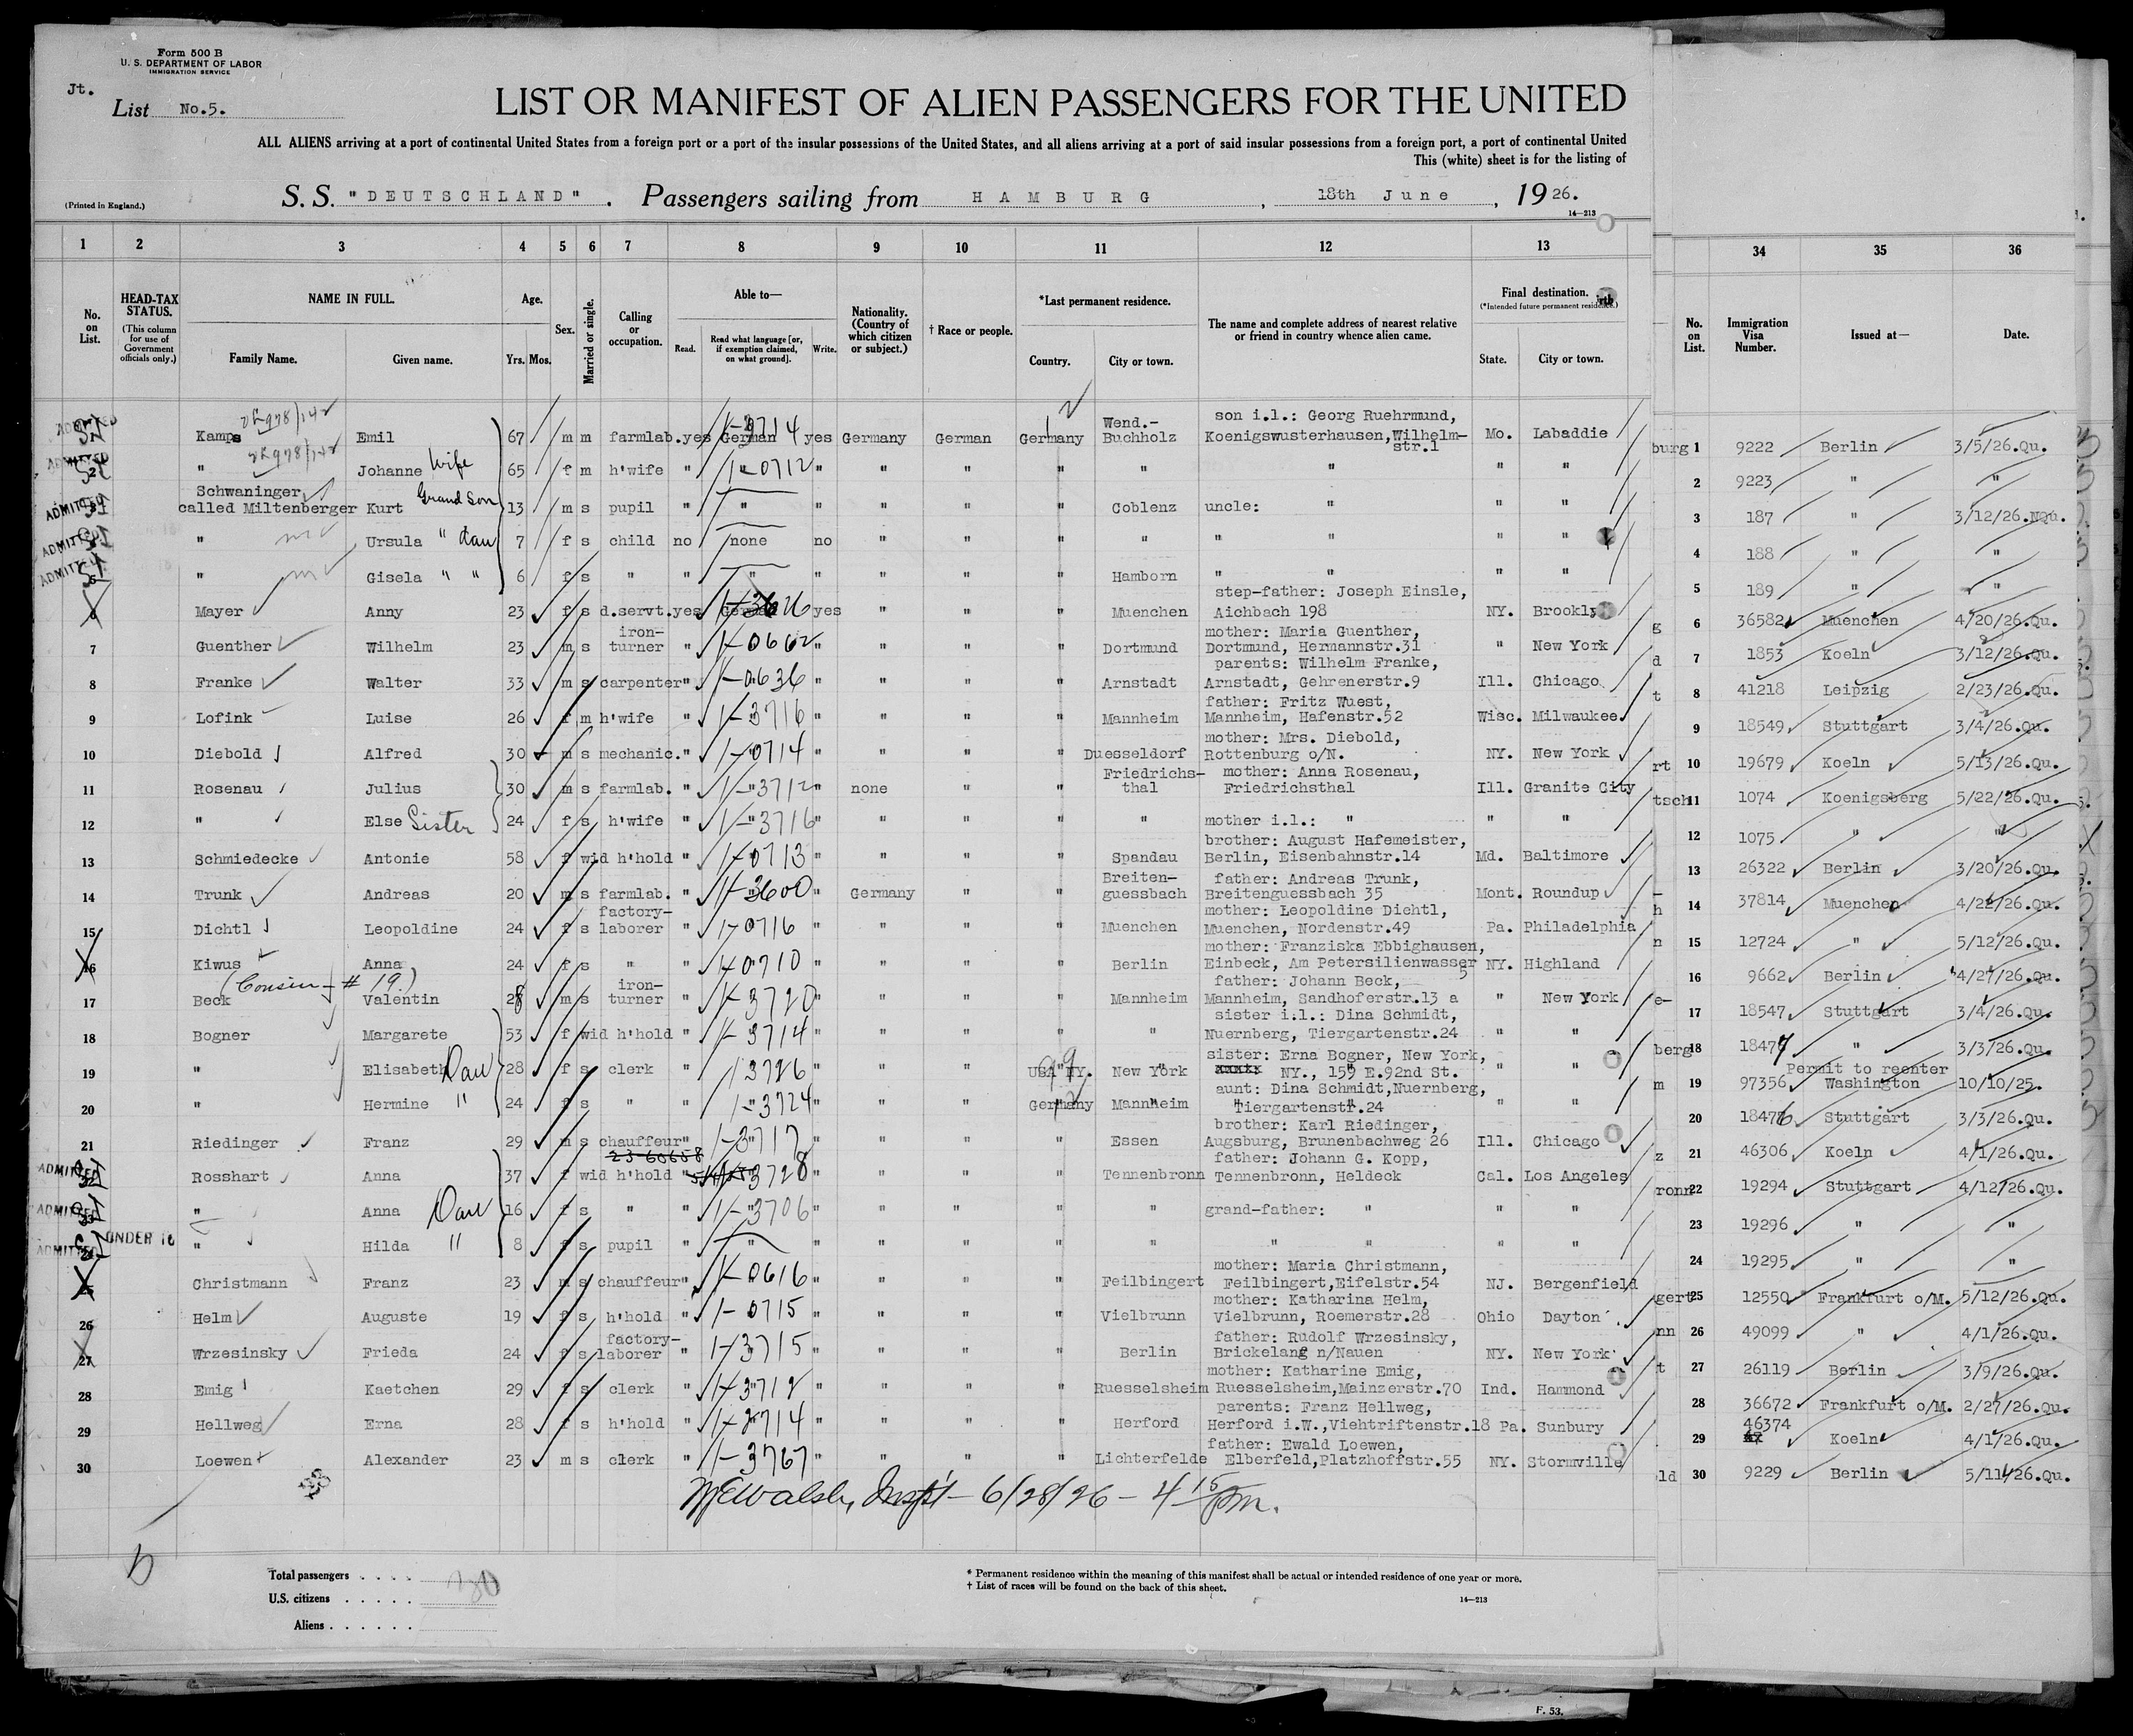 Form 500 B
U. S. DEPARTMENT OF LABOR
IMMIGRATION SERVICE
Jt.
List No.5.
LIST OR MANIFEST OF ALIEN PASSENGERS FOR THE UNITED
ALL ALIENS arriving at a port of continental United States from a foreign port or a port of the insular possessions of the United States, and all aliens arriving at a port of said insular possessions from a foreign port, a port of continental United
This (white) sheet is for the listing of
(Printed in England.)
S. S. "DEUTSCHLAND". Passengers sailing from HAMBURG, 18th June, 1926.
14—213
1 2 3 4 5 6 7 8 9 10 11 12 13 34 35 36
No. on List.
HEAD-TAX STATUS. (This column for use of Government officials only.)
NAME IN FULL.
Family Name. Given name.
Age. Yrs. Mos.
Sex.
Married or single.
Calling or occupation.
Able to—
Read. Read what language [or, if exemption claimed, on what ground]. Write.
Nationality. (Country of which citizen or subject.)
† Race or people.
*Last permanent residence.
Country. City or town.
The name and complete address of nearest relative or friend in country whence alien came.
Final destination.
(*Intended future permanent residence.)
State. City or town.
No. on List.
Immigration Visa Number.
Issued at—
Date.
ADMITTED Kamps Emil 67 m m farmlab. yes German 1-3714 yes Germany German Germany Wend.-Buchholz son i.l.: Georg Ruehrmund, Koenigswusterhausen, Wilhelm-str.1 Mo. Labaddie burg 1 9222 Berlin 3/5/26.Qu.
ADMITTED 2 " Johanne Wife 65 f m h'wife " " 1-0712 " " " " " " " " 2 9223 " "
ADMITTED Schwaninger called Miltenberger Kurt Grand son 13 m s pupil " " " " " " Coblenz uncle: " " " 3 187 " 3/12/26.NQu.
ADMITTED " Ursula " dau 7 f s child no none no " " " " " " " " 4 188 " "
ADMITTED 5 " Gisela " " 6 f s " " " " " " " Hamborn " " " " 5 189 " "
6 Mayer Anny 23 f s d.servt. yes German yes " " " Muenchen step-father: Joseph Einsle, Aichbach 198 NY. Brooklyn g 6 36582 Muenchen 4/20/26.Qu.
7 Guenther Wilhelm 23 m s iron-turner " " 1-0662 " " " " Dortmund mother: Maria Guenther, Dortmund, Hermannstr.31 " New York d 7 1853 Koeln 3/12/26.Qu.
8 Franke Walter 33 m s carpenter " " 1-0636 " " " " Arnstadt parents: Wilhelm Franke, Arnstadt, Gehrenerstr.9 Ill. Chicago t 8 41218 Leipzig 2/23/26.Qu.
9 Lofink Luise 26 f m h'wife " " 1-3716 " " " " Mannheim father: Fritz Wuest, Mannheim, Hafenstr.52 Wisc. Milwaukee 9 18549 Stuttgart 3/4/26.Qu.
10 Diebold Alfred 30 m s mechanic. " " 1-0714 " " " " Duesseldorf mother: Mrs. Diebold, Rottenburg o/N. NY. New York rt 10 19679 Koeln 5/13/26.Qu.
11 Rosenau Julius 30 m s farmlab. " " 1-3712 " none " " Friedrichs-thal mother: Anna Rosenau, Friedrichsthal Ill. Granite City tsch 11 1074 Koenigsberg 5/22/26.Qu.
12 " Else Sister 24 f s h'wife " " 1-3716 " " " " " mother i.l.: " " " 12 1075 " "
13 Schmiedecke Antonie 58 f wid h'hold " " 1-0713 " " " " Spandau brother: August Hafemeister, Berlin, Eisenbahnstr.14 Md. Baltimore 13 26322 Berlin 3/20/26.Qu.
14 Trunk Andreas 20 m s farmlab. " " 1-3600 " Germany " " Breiten-guessbach father: Andreas Trunk, Breitenguessbach 35 Mont. Roundup h 14 37814 Muenchen 4/22/26.Qu.
15 Dichtl Leopoldine 24 f s factory-laborer " " 1-0716 " " " " Muenchen mother: Leopoldine Dichtl, Muenchen, Nordenstr.49 Pa. Philadelphia n 15 12724 " 5/12/26.Qu.
16 Kiwus Anna 24 f s " " " 1-0710 " " " " Berlin mother: Franziska Ebbighausen, Einbeck, Am Petersilienwasser 5 NY. Highland 16 9662 Berlin 4/27/26.Qu.
(Cousin - # 19.)
17 Beck Valentin 28 m s iron-turner " " 1-3720 " " " " Mannheim father: Johann Beck, Mannheim, Sandhoferstr.13 a " New York e- 17 18547 Stuttgart 3/4/26.Qu.
18 Bogner Margarete 53 f wid h'hold " " 1-3714 " " " " " sister i.l.: Dina Schmidt, Nuernberg, Tiergartenstr.24 " " berg 18 18477 " 3/3/26.Qu.
19 " Elisabeth Dau 28 f s clerk " " 1 3726 " " " USA NY. New York sister: Erna Bogner, New York, NY., 159 E.92nd St. " " m 19 97356 Permit to reenter Washington 10/10/25.
20 " Hermine " 24 f s " " " 1-3724 " " " Germany Mannheim aunt: Dina Schmidt, Nuernberg, Tiergartenstr.24 " " 20 18476 Stuttgart 3/3/26.Qu.
21 Riedinger Franz 29 m s chauffeur " " 1-3717 " " " " Essen brother: Karl Riedinger, Augsburg, Brunenbachweg 26 Ill. Chicago z 21 46306 Koeln 4/1/26.Qu.
23-60658
ADMITTED Rosshart Anna 37 f wid h'hold " 3728 " " " " Tennenbronn father: Johann G. Kopp, Tennenbronn, Heldeck Cal. Los Angeles ronn 22 19294 Stuttgart 4/12/26.Qu.
ADMITTED " Anna Dau 16 f s " " " 1-3706 " " " " " grand-father: " " " 23 19296 " "
ADMITTED UNDER 16 " Hilda " 8 f s pupil " " " " " " " " " " " 24 19295 " "
25 Christmann Franz 23 m s chauffeur " " 1-0616 " " " " Feilbingert mother: Maria Christmann, Feilbingert, Eifelstr.54 NJ. Bergenfield gert 25 12550 Frankfurt o/M. 5/12/26.Qu.
26 Helm Auguste 19 f s h'hold " " 1-0715 " " " " Vielbrunn mother: Katharina Helm, Vielbrunn, Roemerstr.28 Ohio Dayton nn 26 49099 " 4/1/26.Qu.
27 Wrzesinsky Frieda 24 f s factory-laborer " " 1-3715 " " " " Berlin father: Rudolf Wrzesinsky, Brickelang n/Nauen NY. New York t 27 26119 Berlin 3/9/26.Qu.
28 Emig Kaetchen 29 f s clerk " " 1-3712 " " " " Ruesselsheim mother: Katharine Emig, Ruesselsheim, Mainzerstr.70 Ind. Hammond 28 36672 Frankfurt o/M. 2/27/26.Qu.
29 Hellweg Erna 28 f s h'hold " " " " " " Herford parents: Franz Hellweg, Herford i.W., Viehtriftenstr.18 Pa. Sunbury 29 46374 Koeln 4/1/26.Qu.
30 Loewen Alexander 23 m s clerk " " 1-3767 " " " " Lichterfelde father: Ewald Loewen, Elberfeld, Platzhoffstr.55 NY. Stormville ld 30 9229 Berlin 5/11/26.Qu.
Walsh, Insp't - 6/28/26 - 4 15 pm.
Total passengers . . . . 30
U.S. citizens . . . . .
Aliens . . . . . .
* Permanent residence within the meaning of this manifest shall be actual or intended residence of one year or more.
† List of races will be found on the back of this sheet.
14—213
F. 53.